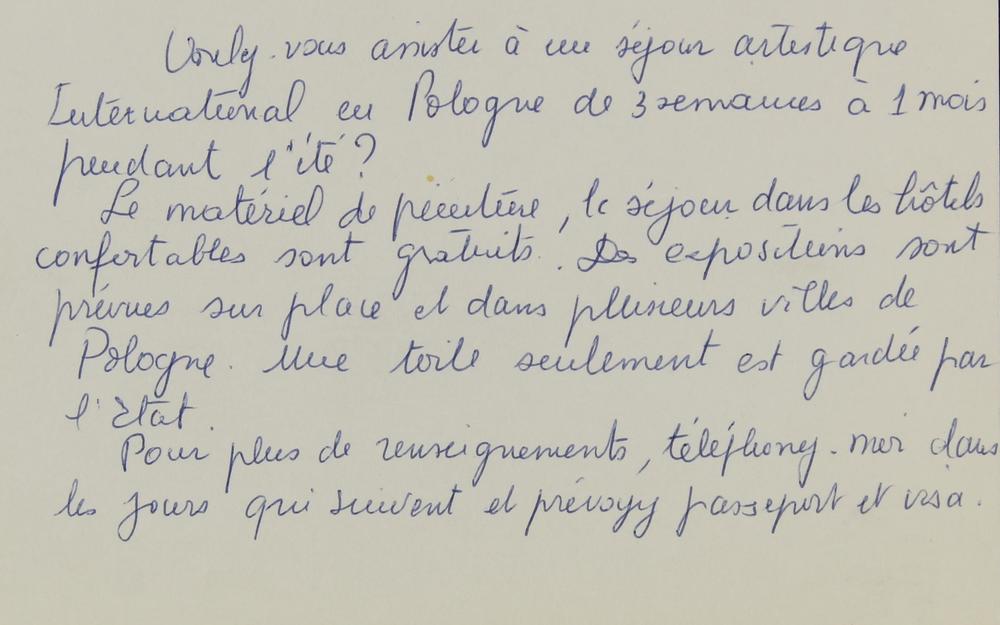 Voulez-vous assister à un séjour artistique
International en Pologne de 3 semaines à 1 mois
pendant l'été ?
Le matériel de peinture, le séjour dans les hôtels
confortables sont gratuits. Des expositions sont
prévues sur place et dans plusieurs villes de
Pologne. Une toile seulement est gardée par
l'état.
Pour plus de renseignements, téléphonez-moi dans
les jours qui suivent et prévoyez passeport et visa.